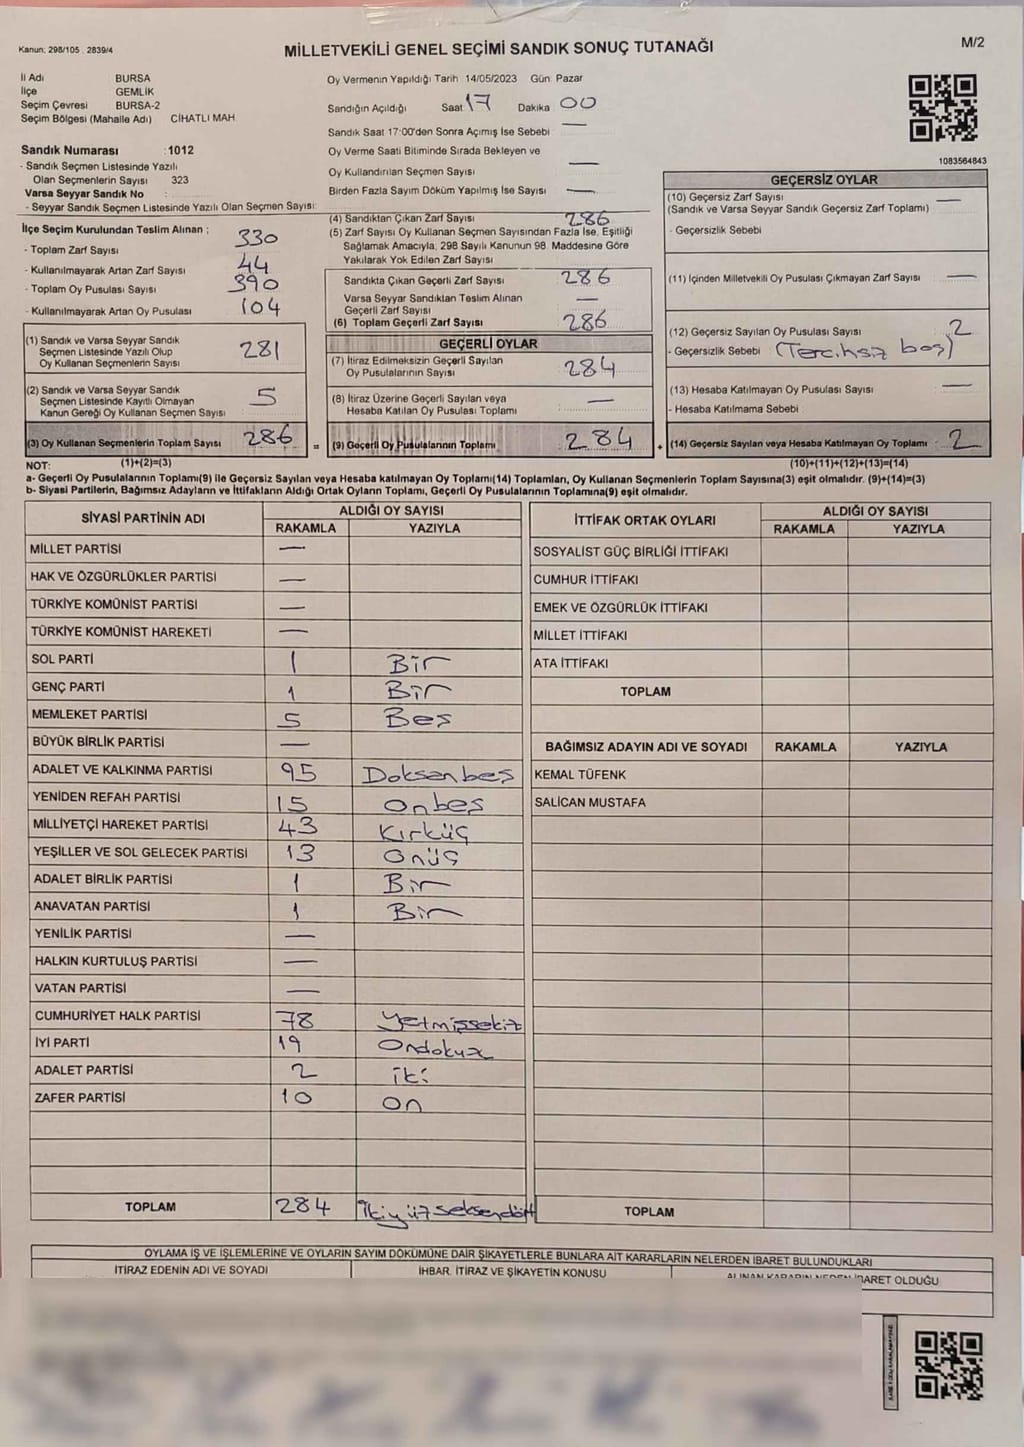 Kanun; 298/105 . 2839/4
MİLLETVEKİLİ GENEL SEÇİMİ SANDIK SONUÇ TUTANAĞI
M/2
İl Adı BURSA
İlçe GEMLİK
Seçim Çevresi BURSA-2
Seçim Bölgesi (Mahalle Adı) CİHATLI MAH.
Sandık Numarası : 1012
- Sandık Seçmen Listesinde Yazılı
Olan Seçmenlerin Sayısı 323
Varsa Seyyar Sandık No :
- Seyyar Sandık Seçmen Listesinde Yazılı Olan Seçmen Sayısı:
İlçe Seçim Kurulundan Teslim Alınan ;
- Toplam Zarf Sayısı 330
- Kullanılmayarak Artan Zarf Sayısı 44
- Toplam Oy Pusulası Sayısı 390
- Kullanılmayarak Artan Oy Pusulası 104
(1) Sandık ve Varsa Seyyar Sandık
Seçmen Listesinde Yazılı Olup
Oy Kullanan Seçmenlerin Sayısı 281
(2) Sandık ve Varsa Seyyar Sandık
Seçmen Listesinde Kayıtlı Olmayan
Kanun Gereği Oy Kullanan Seçmen Sayısı 5
(3) Oy Kullanan Seçmenlerin Toplam Sayısı 286 =
(1)+(2)=(3)
Oy Vermenin Yapıldığı Tarih 14/05/2023 Gün: Pazar
Sandığın Açıldığı Saat 17 Dakika 00
Sandık Saat 17:00'den Sonra Açımış İse Sebebi —
Oy Verme Saati Bitiminde Sırada Bekleyen ve
Oy Kullandırılan Seçmen Sayısı —
Birden Fazla Sayım Döküm Yapılmış İse Sayısı —
(4) Sandıktan Çıkan Zarf Sayısı 286
(5) Zarf Sayısı Oy Kullanan Seçmen Sayısından Fazla İse, Eşitliği
Sağlamak Amacıyla, 298 Sayılı Kanunun 98. Maddesine Göre
Yakılarak Yok Edilen Zarf Sayısı
Sandıkta Çıkan Geçerli Zarf Sayısı 286
Varsa Seyyar Sandıktan Teslim Alınan
Geçerli Zarf Sayısı —
(6) Toplam Geçerli Zarf Sayısı 286
GEÇERLİ OYLAR
(7) İtiraz Edilmeksizin Geçerli Sayılan
Oy Pusulalarının Sayısı 284
(8) İtiraz Üzerine Geçerli Sayılan veya
Hesaba Katılan Oy Pusulası Toplamı —
(9) Geçerli Oy Pusulalarının Toplamı 284 +
1083564843
GEÇERSİZ OYLAR
(10) Geçersiz Zarf Sayısı —
(Sandık ve Varsa Seyyar Sandık Geçersiz Zarf Toplamı)
- Geçersizlik Sebebi
(11) İçinden Milletvekili Oy Pusulası Çıkmayan Zarf Sayısı —
(12) Geçersiz Sayılan Oy Pusulası Sayısı 2
- Geçersizlik Sebebi (Tercihsiz boş)
(13) Hesaba Katılmayan Oy Pusulası Sayısı —
- Hesaba Katılmama Sebebi
(14) Geçersiz Sayılan veya Hesaba Katılmayan Oy Toplamı : 2
(10)+(11)+(12)+(13)=(14)
NOT:
a- Geçerli Oy Pusulalarının Toplamı(9) ile Geçersiz Sayılan veya Hesaba katılmayan Oy Toplamı(14) Toplamları, Oy Kullanan Seçmenlerin Toplam Sayısına(3) eşit olmalıdır. (9)+(14)=(3)
b- Siyasi Partilerin, Bağımsız Adayların ve İttifakların Aldığı Ortak Oyların Toplamı, Geçerli Oy Pusulalarının Toplamına(9) eşit olmalıdır.
SİYASİ PARTİNİN ADI ALDIĞI OY SAYISI
RAKAMLA YAZIYLA
MİLLET PARTİSİ —
HAK VE ÖZGÜRLÜKLER PARTİSİ —
TÜRKİYE KOMÜNİST PARTİSİ —
TÜRKİYE KOMÜNİST HAREKETİ —
SOL PARTİ 1 Bir
GENÇ PARTİ 1 Bir
MEMLEKET PARTİSİ 5 Beş
BÜYÜK BİRLİK PARTİSİ —
ADALET VE KALKINMA PARTİSİ 95 Doksanbeş
YENİDEN REFAH PARTİSİ 15 Onbeş
MİLLİYETÇİ HAREKET PARTİSİ 43 Kırküç
YEŞİLLER VE SOL GELECEK PARTİSİ 13 Onüç
ADALET BİRLİK PARTİSİ 1 Bir
ANAVATAN PARTİSİ 1 Bir
YENİLİK PARTİSİ —
HALKIN KURTULUŞ PARTİSİ —
VATAN PARTİSİ —
CUMHURİYET HALK PARTİSİ 78 Yetmişsekiz
İYİ PARTİ 19 Ondokuz
ADALET PARTİSİ 2 iki
ZAFER PARTİSİ 10 On
TOPLAM 284 İkiyüzseksendört
İTTİFAK ORTAK OYLARI ALDIĞI OY SAYISI
RAKAMLA YAZIYLA
SOSYALİST GÜÇ BİRLİĞİ İTTİFAKI
CUMHUR İTTİFAKI
EMEK VE ÖZGÜRLÜK İTTİFAKI
MİLLET İTTİFAKI
ATA İTTİFAKI
TOPLAM
BAĞIMSIZ ADAYIN ADI VE SOYADI RAKAMLA YAZIYLA
KEMAL TÜFENK
SALİCAN MUSTAFA
TOPLAM
OYLAMA İŞ VE İŞLEMLERİNE VE OYLARIN SAYIM DÖKÜMÜNE DAİR ŞİKAYETLERLE BUNLARA AİT KARARLARIN NELERDEN İBARET BULUNDUKLARI
İTİRAZ EDENİN ADI VE SOYADI İHBAR, İTİRAZ VE ŞİKAYETİN KONUSU ALINAN KARARIN NEDEN İBARET OLDUĞU